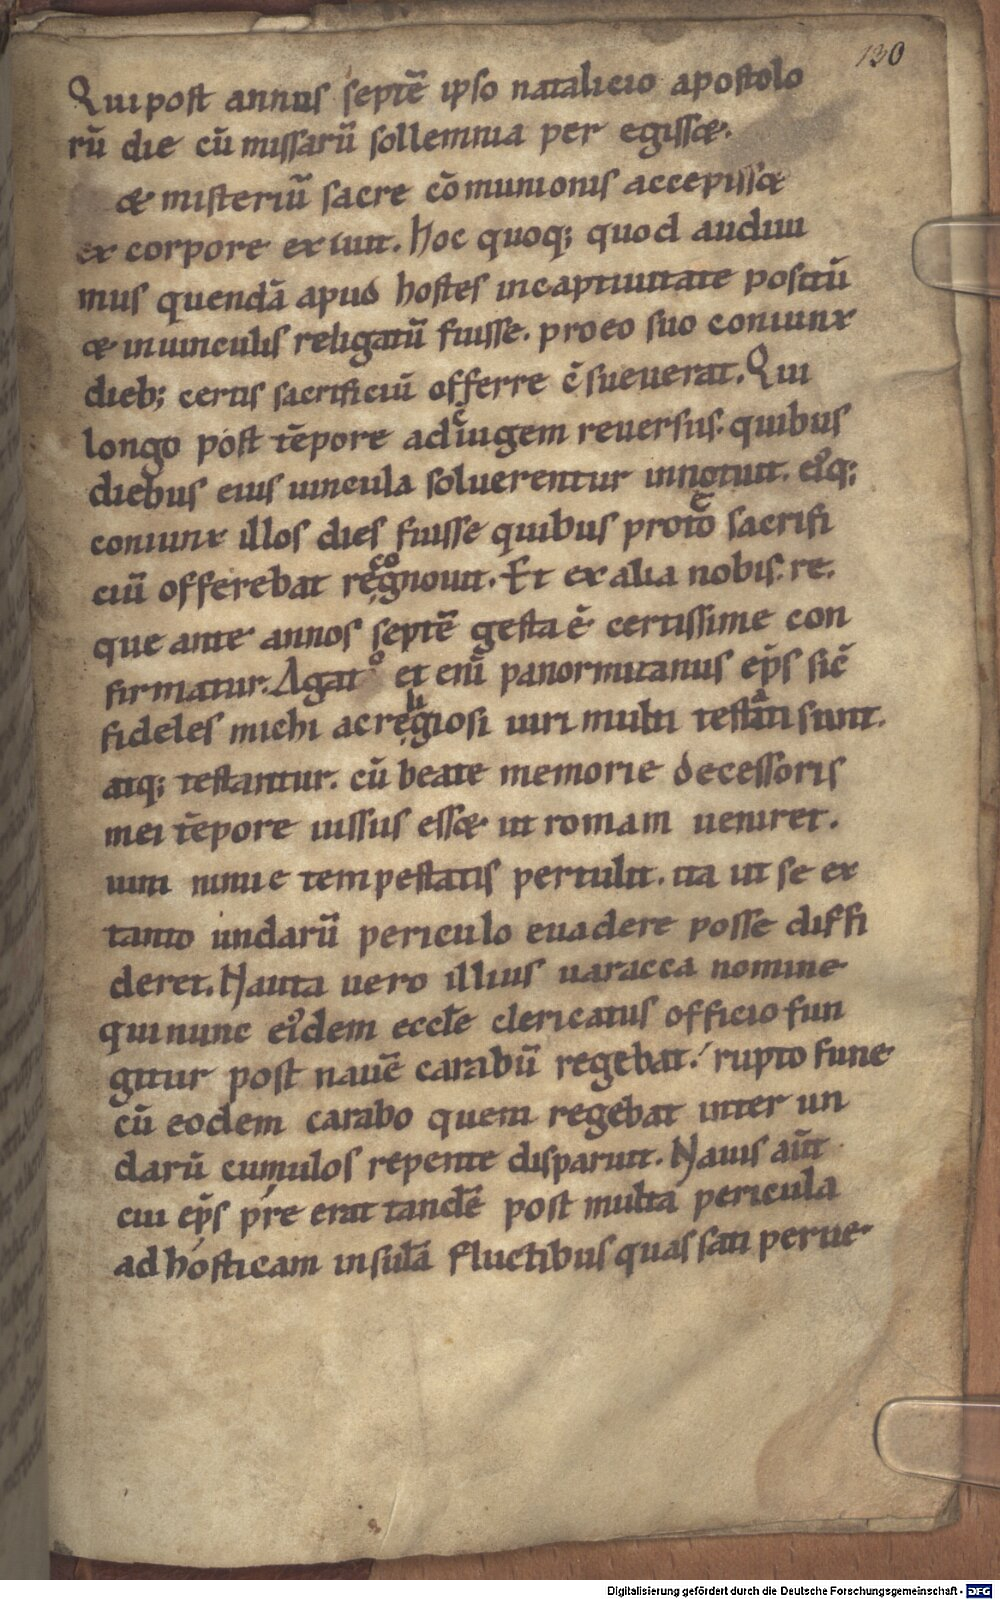 130
Qui post annus septē ipso natalicio apostolo
rū die cū missarū sollemnia per egissæ.
æ misteriū sacre cōmunionis accepissæ
ex corpore exiuit. hoc quoq; quod audiui
mus quendā apud hostes incaptiuitate positū
æ inuinculis religatū fuisse. pro eo suo coniunx
dieb; certis sacrificiū offerre c̄sueuerat. Qui
longo post tēpore ad ciugem reuersus. quibus
diebus eius uincula soluerentur innotuit. ei9q;
coniunx illos dies fuisse quibus proto e sacrifi
ciū offerebat regnouit. co Et ex alia nobis. re.
que ante annos septē gesta ē certissime con
firmatur. Agato et eni panormitanus ep̄s sic̄
fideles michi ac regiosi li uiri multi testati sunt.
atq; testantur. cū beate memorie decessoris
mei tēpore iussus essæ ut romam ueniret.
uim nimie tempestatis pertulit. ita ut se ex
tanto undarū periculo euadere posse diffi
deret. Nauta uero illius uaracca nomine
qui nunc ei9dem eccłe clericatus officio fun
gitur post nauē carabū regebat. rupto fune
cū eodem carabo quem regebat inter un
darū cumulos repente disparuit. Nauis aūt
cui ep̄s p̄re erat tandē post multa pericula
ad hosticam insulā fluctibus quassati perue
Digitalisierung gefördert durch die Deutsche Forschungsgemeinschaft - DFG